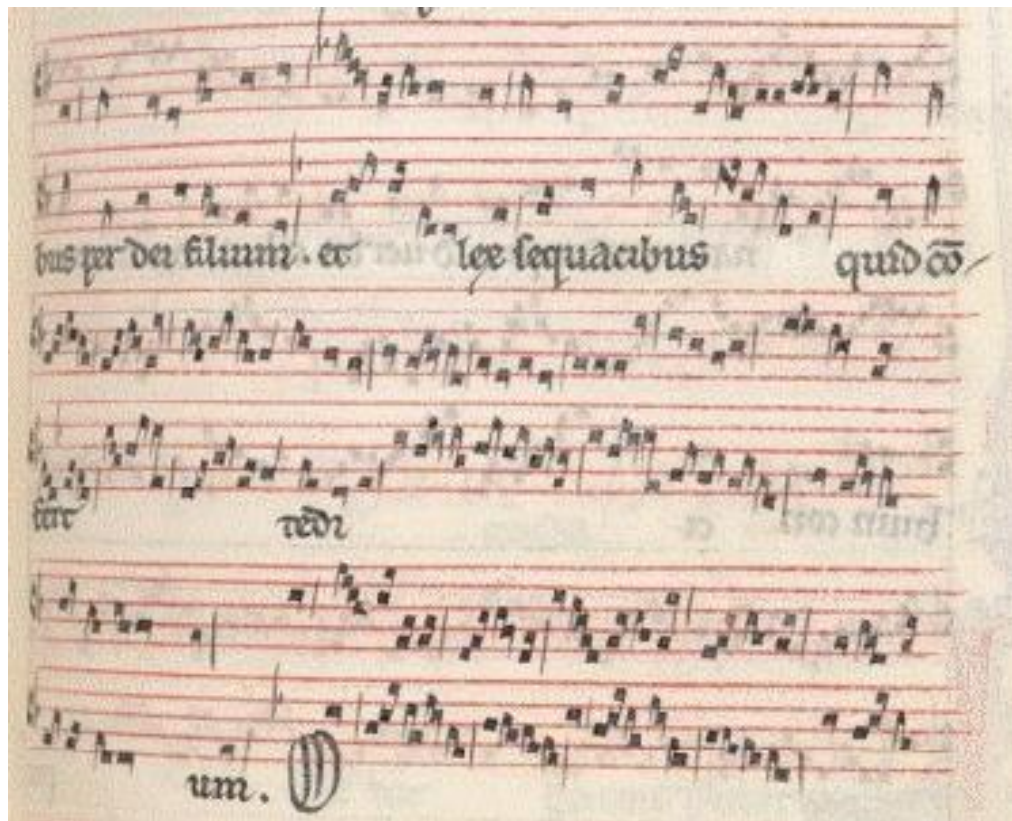 bus per dei filium . et lex sequacibus quid cō
fert redi
um .